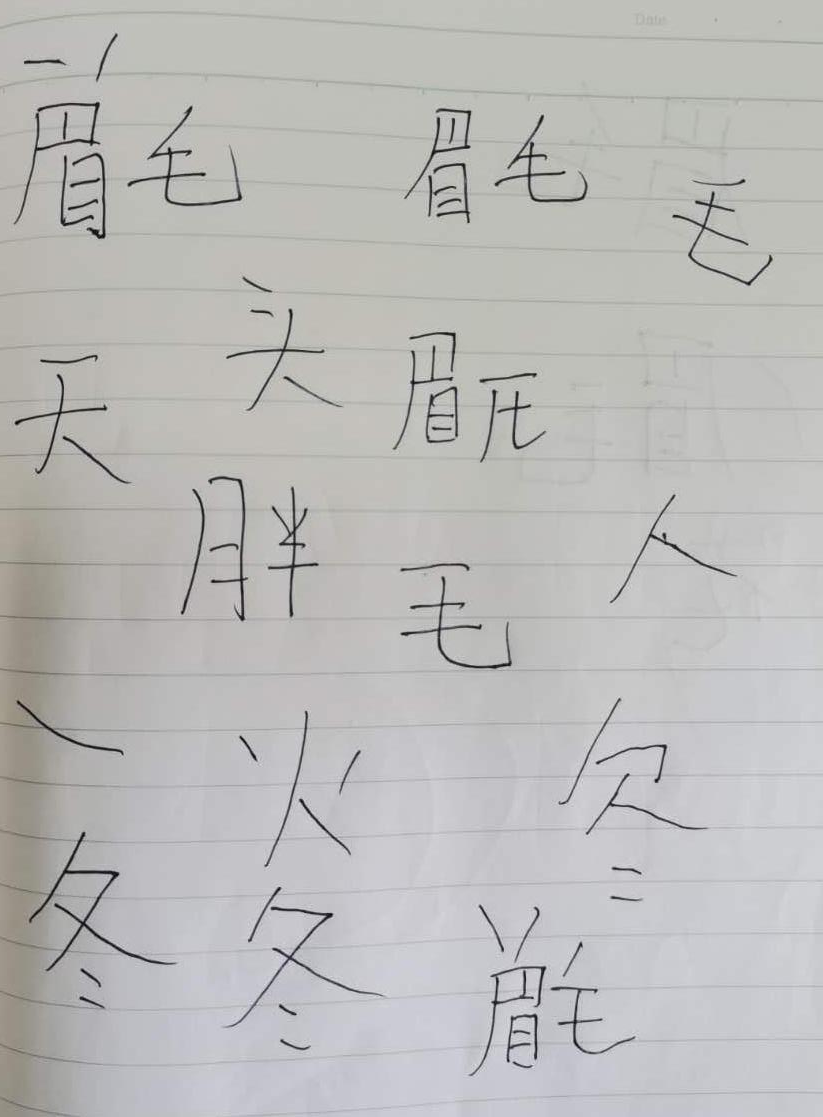 Date
一 丿
眉毛 眉毛 毛
天 头 眉毛
胖 毛 人
火
冬 冬 眉毛